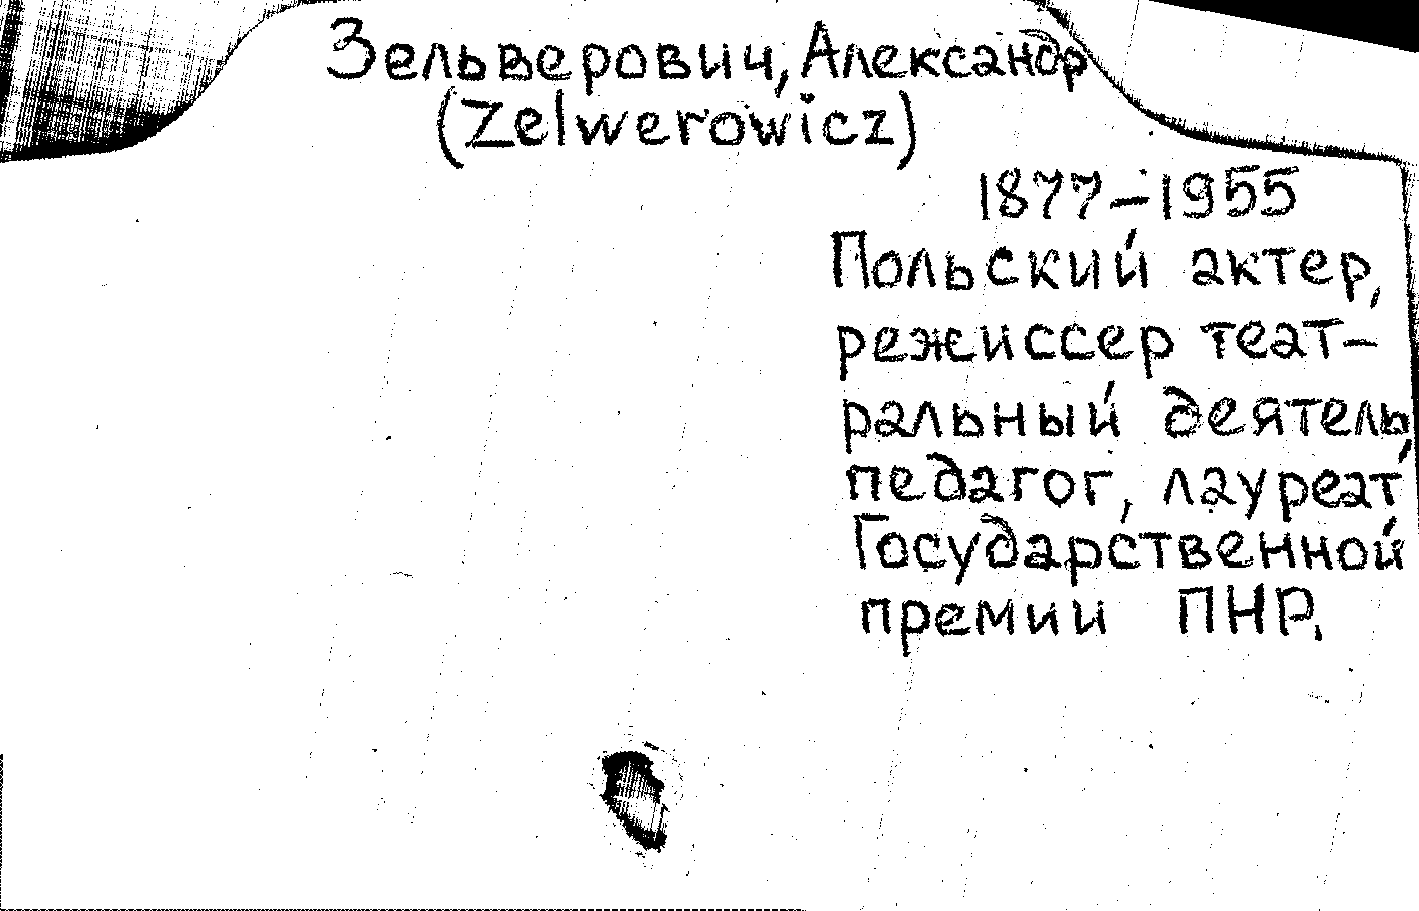 Зельверович, Александр
(Zelwerowicz)
1877–1955
Польский актер,
режиссер теат-
ральный деятель,
педагог, лауреат
Государственной
премии ПНР.